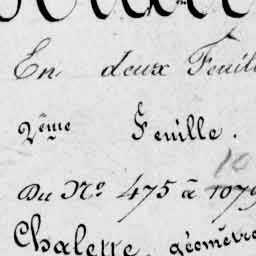 En deux Feuill
2ème Feuille.
10
Du Nos 475 à 1079
Chalette, géomètre